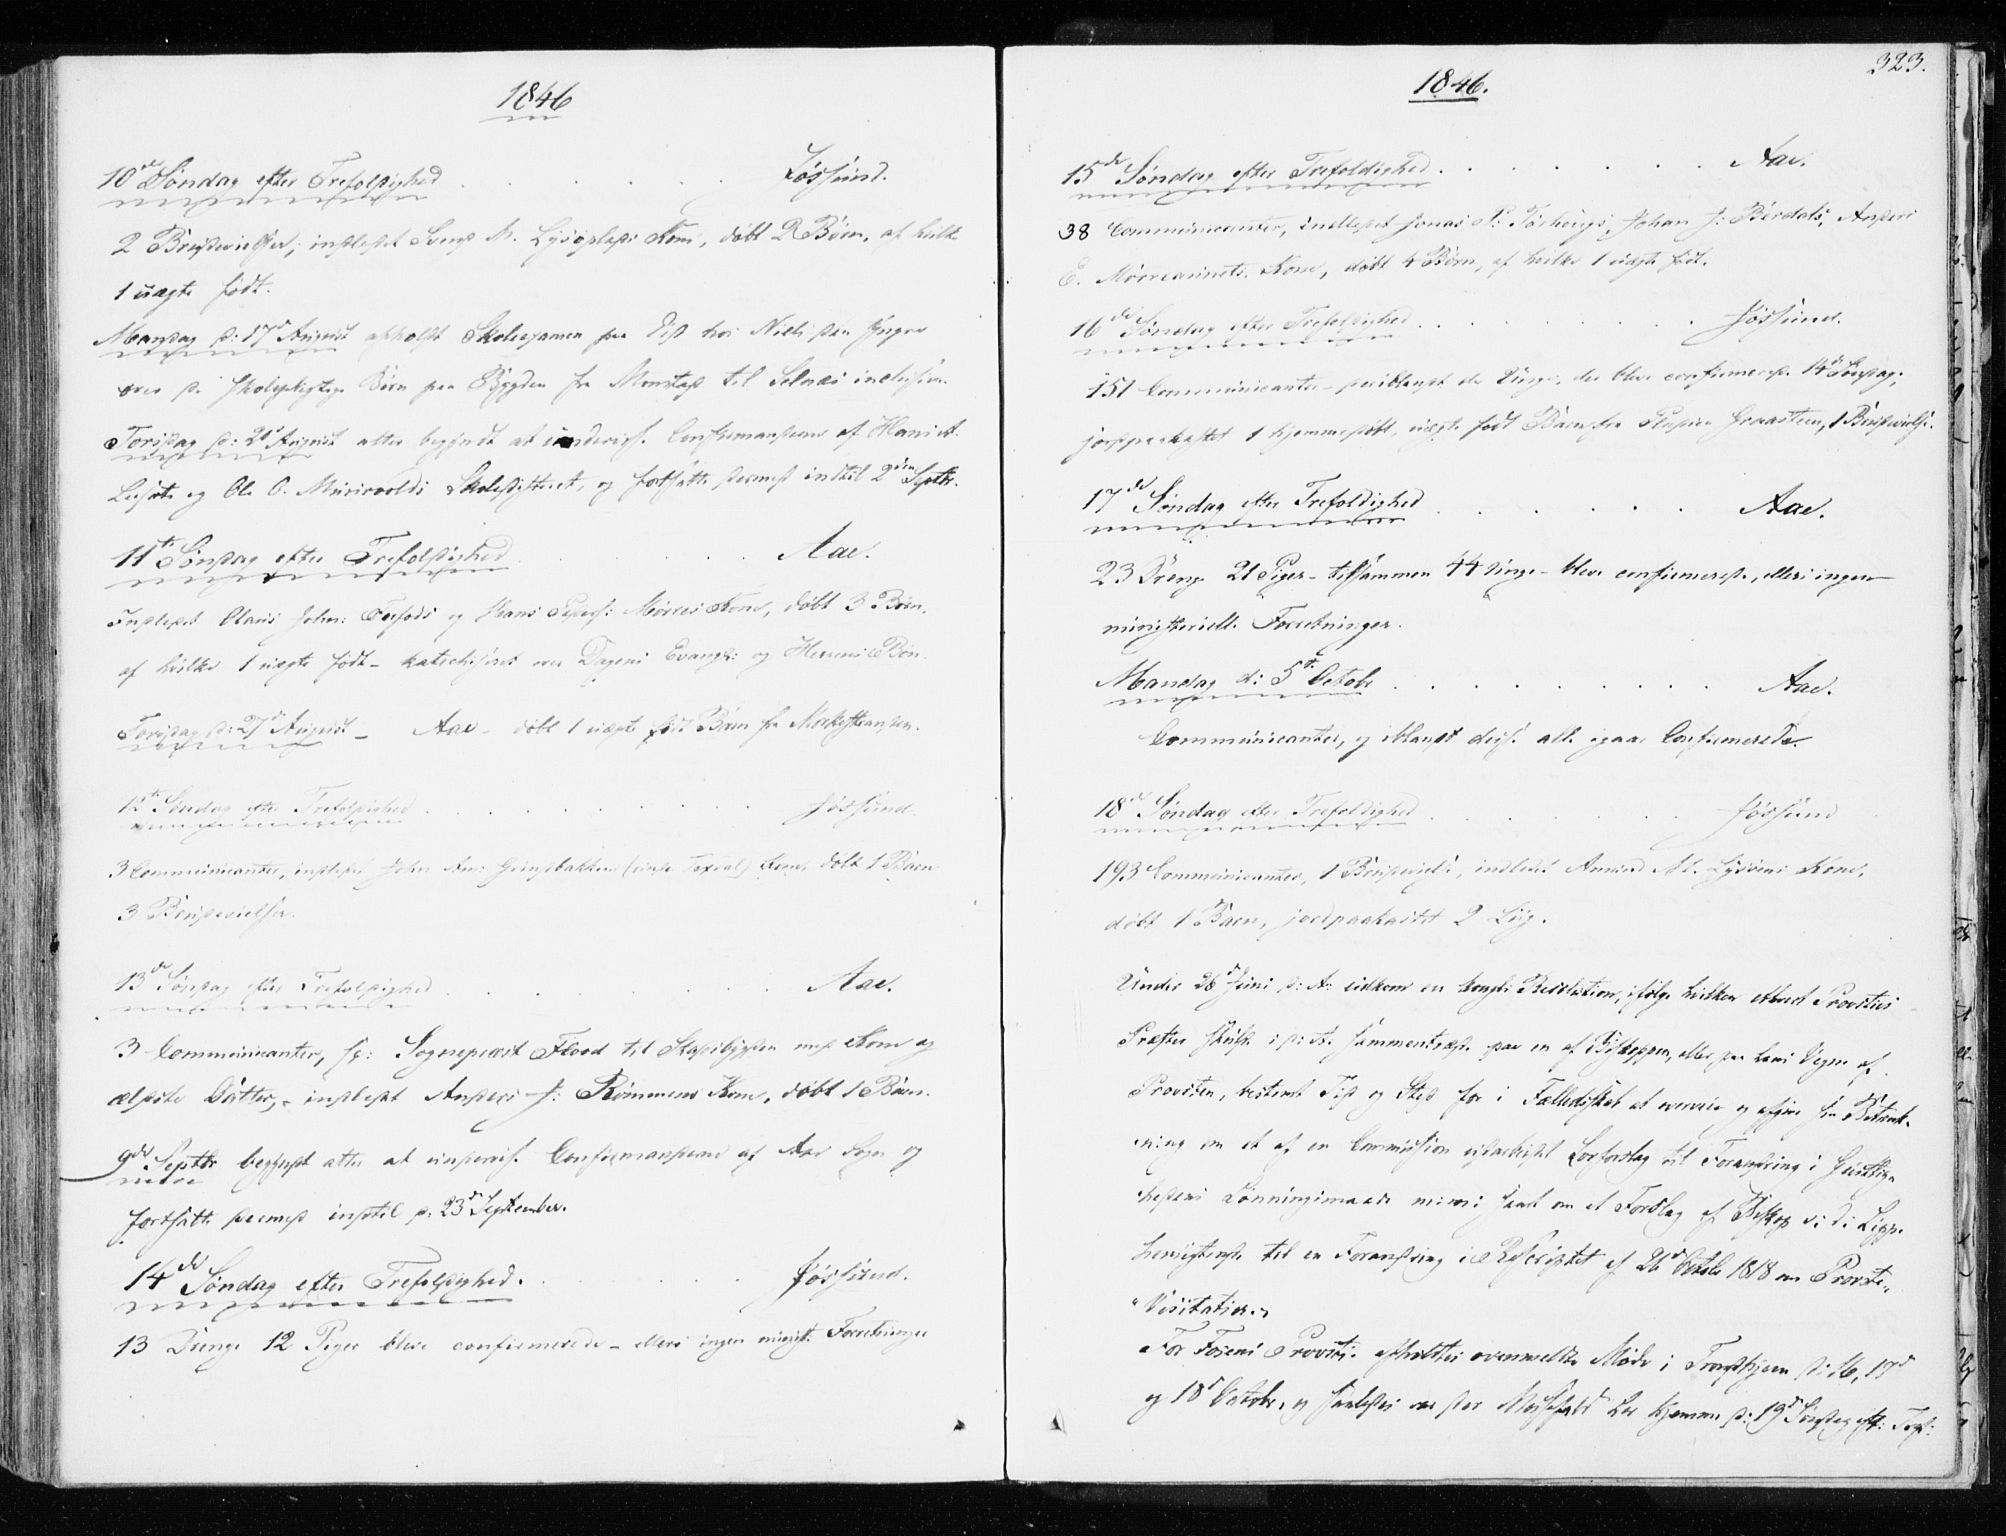 1846
10de Søndag efter Trefoldighed . . . . . . . Jøssund.
2 Brudevielser; indledet M. Kone, døbt 2 Børn, af hvilke
1 uægte født.
Mandag d: 17d August afholdt Skoleexamen paa hos Niels
over de skolepligtige Børn paa Bygden fra Monstad til Selnæs inclusive.
Torsdag d: 20d August atter begyndt at undervise Confirmanderne af
og Ole O. Skoledistrict, og fortsatte dermed indtil 2den Septbr.
11te Søndag efter Trefoldighed . . . . . Aae.
Indledet Olaus John: og Hans Peders: Mørres Kone, døbt 3 Børn,
af hvilke 1 uægte født – katechiseret over Dagens Evangl: og Herrens Bøn.
Torsdag d: 27d August – Aae – døbt 1 uægte født Barn fra
12te Søndag efter Trefoldighed . . . . . . . . . Jøssund.
3 Communicanter, indledet John And: Kone, døbt 1 Barn
3 Brudevielser.
13de Søndag efter Trefoldighed . . . . . . . . Aae.
3 Communicanter, Sogneprest Flood til Stadsbygden med Kone og
ældste Datter, – indledet Anders J: Rømmens Kone, døbt 1 Barn.
9de Septbr begyndt atter at undervise Confirmanderne af Aae Sogn og
fortsatte dermed indtil d: 23d September.
14de Søndag efter Trefoldighed . . . . . . Jøssund.
13 Drenge 12 Piger bleve confirmerede – ellers ingen minist: Forretninger
323.
1846.
15de Søndag efter Trefoldighed . . . . . . . . Aae.
38 Communicanter, indledet Jonas P: Johan J: Berdals, Anders
E. Kone, døbt 4 Børn, af hvilke 1 uægte født.
16de Søndag efter Trefoldighed . . . . . . . . . Jøssund.
151 Communicanter – deriblandt de Unge, der bleve confirmerede 14de Søndag;
jordpaakastet 1 hjemmedøbt, uægte født Barn fra Pladsen Graasteen, 1 Brudevielse.
17de Søndag efter Trefoldighed . . . . . . Aae.
23 Drenge 21 Piger – tilsammen 44 Unge – bleve confirmerede, ellers ingen
ministerielle Forretninger.
Mandag d: 5te Octobr . . . . . . . . . Aae.
Communicanter, og iblandt disse alle igaar Confirmerede.
18de Søndag efter Trefoldighed . . . . . . . Jøssund
193 Communicanter, 1 Brudevielse, indledet Amund M. Lysøens Kone,
døbt 1 Barn, jordpaakastet 2 Liig.
Under 26d Juni d: A: udkom en kongl: Resolution, ifølge hvilken ethvert Provsties
Præster skulde i d: A: sammentræde paa en af Biskoppen, eller paa hans Vegne af
Provsten, bestemt Tid og Sted for i Fælledskab at overveie og afgive sin Betænk-
ning om et af en Commission udarbeidet Lovforslag til Forandring i Geistlig-
hedens Lønningsmaade m: m: samt om et Forslag af Biskop v: d: Lippe
hensigtende til en Forandring i Rescriptet af 26d Octobr 1818 om Provste-
"Visitatser."
For Fosens Provsti afholdtes ovenmeldte Møde i Trondhjem d: 16, 17d
og 18d Octobr, og saaledes var der Messefald her hjemme d: 19d Søndag eft: Tref: